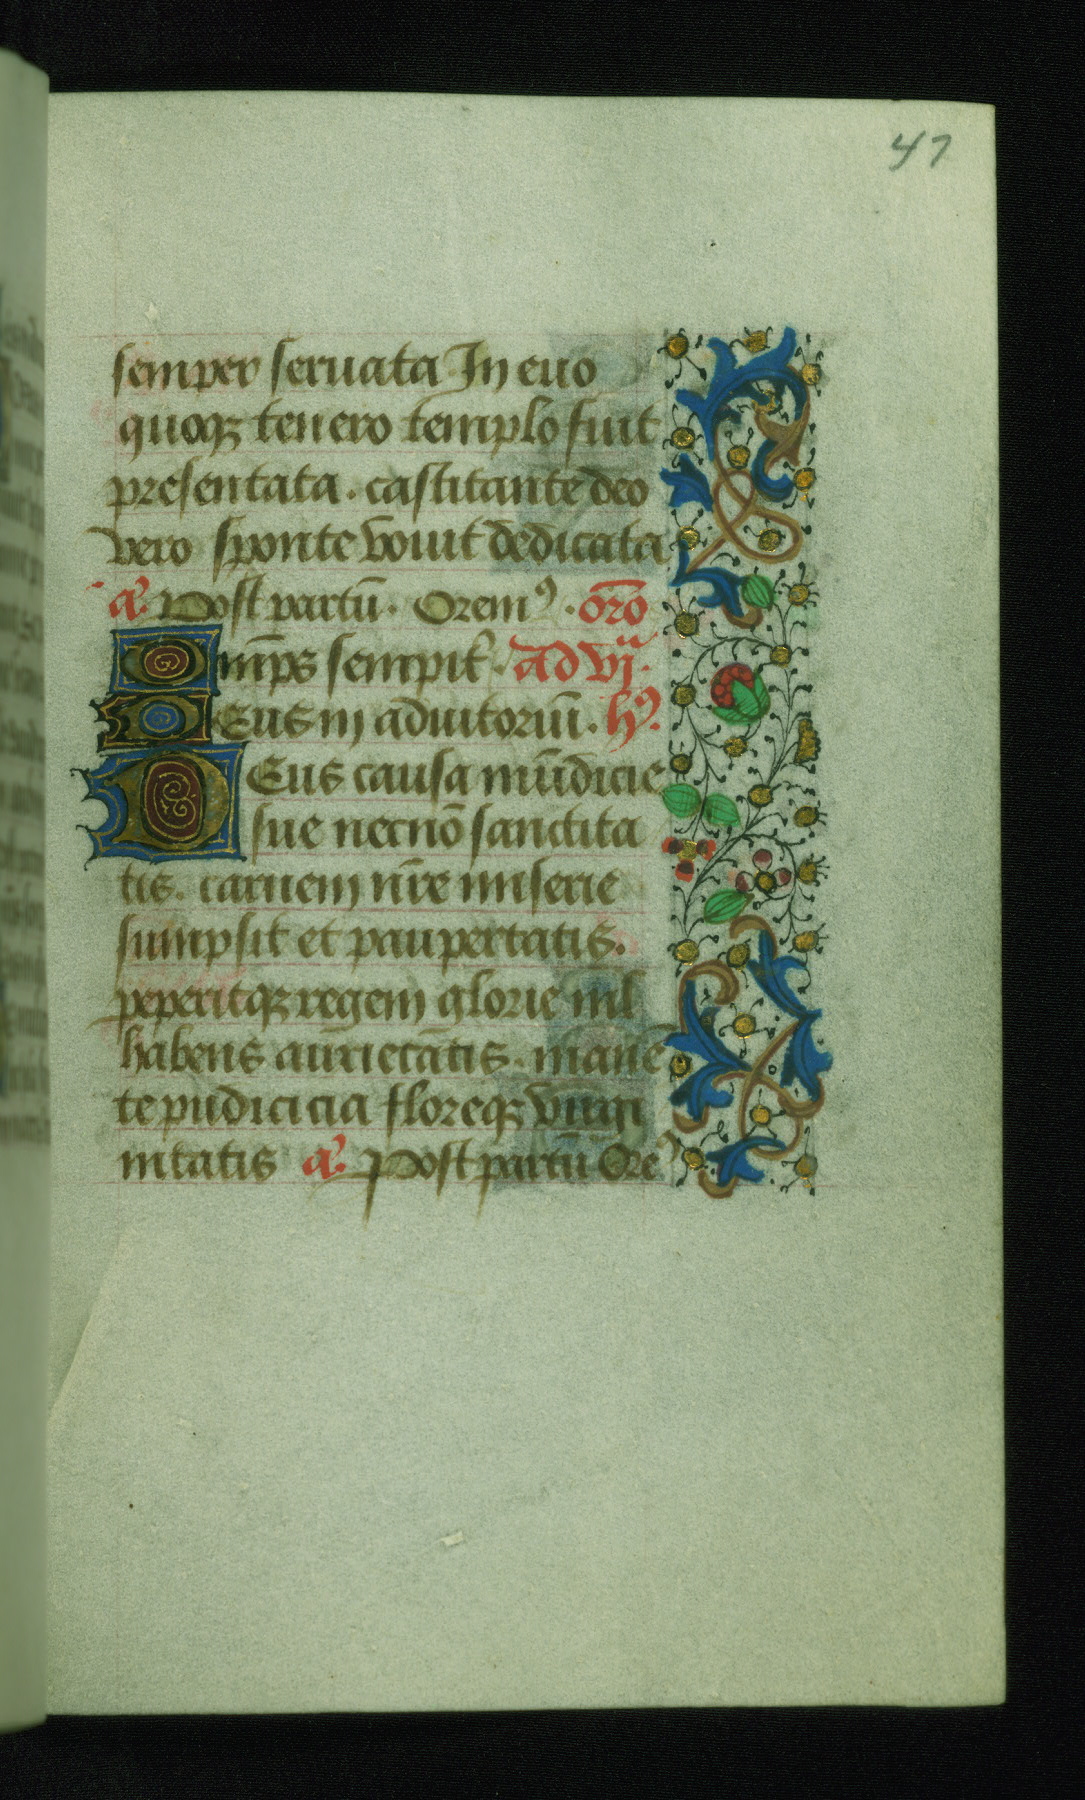 47
semper seruata In euo
quoqꝫ tenero templo fuit
presentata . castitante deo
vero sponte vouit dedicata
a᷒. Post partū . Oremꝰ . or̄o
Om̄ps sempit̄ . Ad vi.
Deus in adiutoriū . hꝰ.
Deus causa mūdicie
sue necnō sanctita
tis . carnem nr̄e miserie
sumpsit et paupertatis.
peperitqꝫ regem glorie nil
habens
te pudicicia floreqꝫ virgi
nitatis a᷒. Post partū Oreꝰ